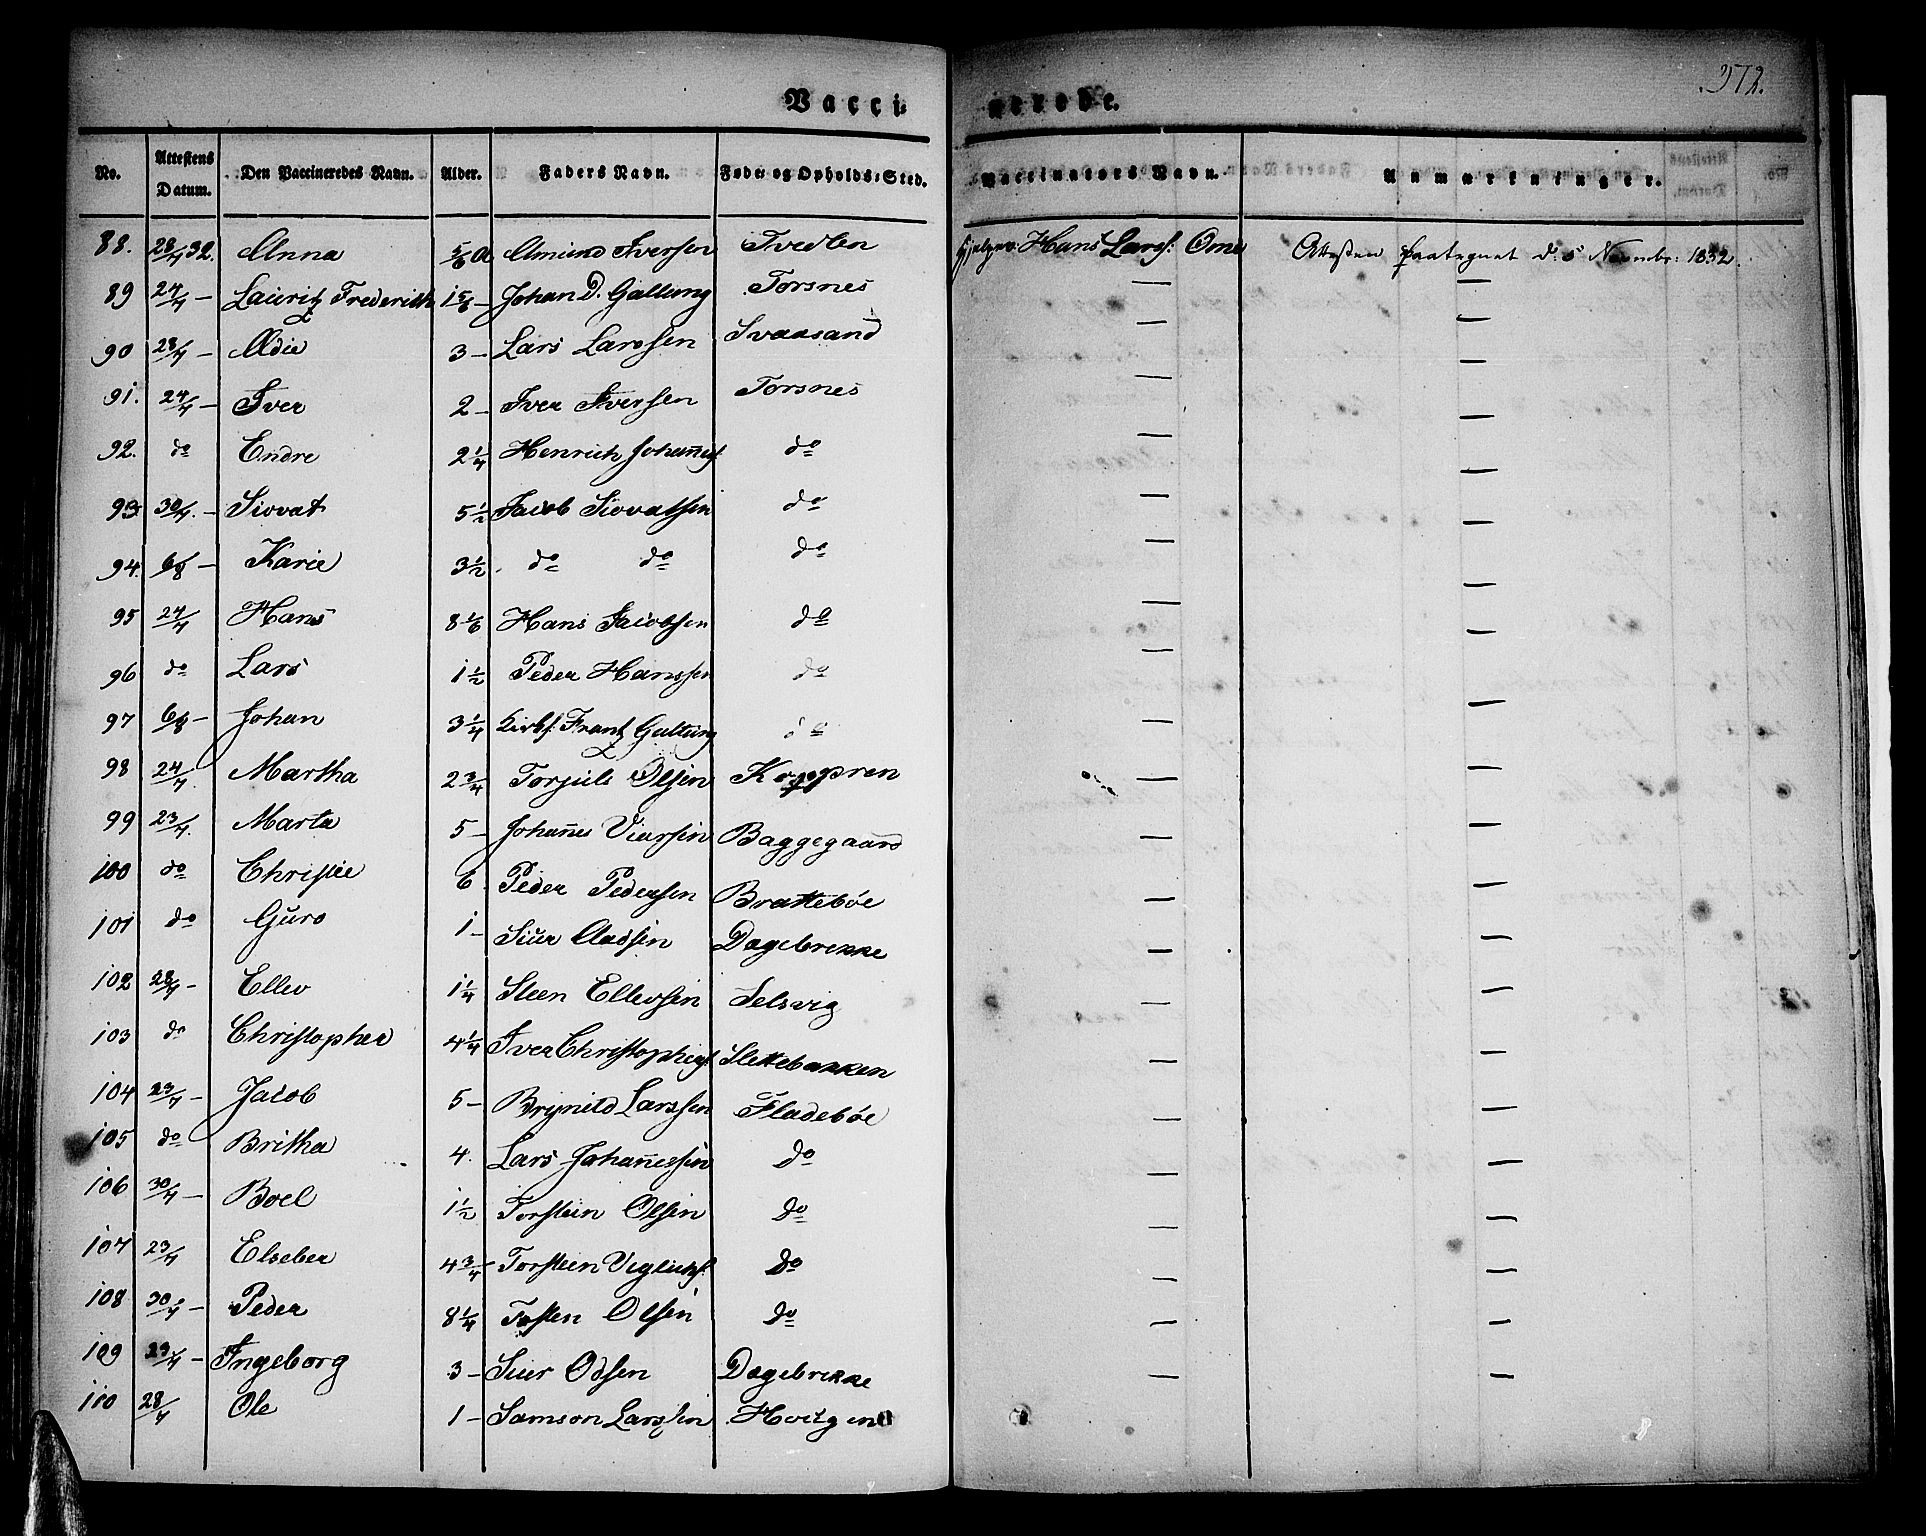 Vacci- nerede.
372.
No. | Attestens Datum. | Den Vaccineredes Navn. | Alder. | Faders Navn. | Føde- og Opholds-Sted. | Vaccinateurs Navn. | Anmærkninger.
88. 28/7 32. Anna 5/6 A Amund Iversen Tvedten Hans Lars: Ome Attesten paategnet d. 5 Novembr: 1832.
89 24/7 – Lauritz Frederich 1 5/6 – Johan D. Galtung Torsnes — —
90 28/7 – Adie 3 – Lars Larssen Svaasand — —
91. 24/7 – Iver 2 – Iver Iversen Torsnes — —
92. do Endre 2 1/4 Henrich Johannesf do — —
93 30/7. – Siovat 5 1/2 Jacob Siovatsen do — —
94. 6/8 – Karie 3 1/2. do do do — —
95 24/7 Hans 8 1/6 Hans Jacobsen do — —
96 do Lars 1 1/2 Peder Hanssen do — —
97 6/8 – Johan 3 1/4 Frantz Galtung do — —
98 24/7. Martha 2 3/4 Torjuls Olsen Koppren — —
99 23/7. Marta 5 – Johannes Viarsen Baggegaard — —
100 do Christie 6. Peder Pedersen Brattebøe — —
101 do Guro 1 – Siur Aadsen Dagebrekke — —
102 28/7 – Ellev 1 1/4 Steen Ellevsen Selsvig — —
103 do Christopher 4 1/4 Iver Christophersf Slettebakken — —
104 23/7 – Jacob 5 – Brynild Larssen Fladebøe — —
105 do Britha 4. Lars Johannessen do — —
106 30/7 – Boel 1 1/2 Torstein Olsen do — —
107 23/7 Elseber 4 3/4 Torsteen do — —
108 30/7 – Peder 8 1/4 Tosten Olsen do — —
109 23/7 – Ingeborg 3 – Siur Odsen Dagebrekke — —
110 28/7 Ole 1 – Samson Larssen